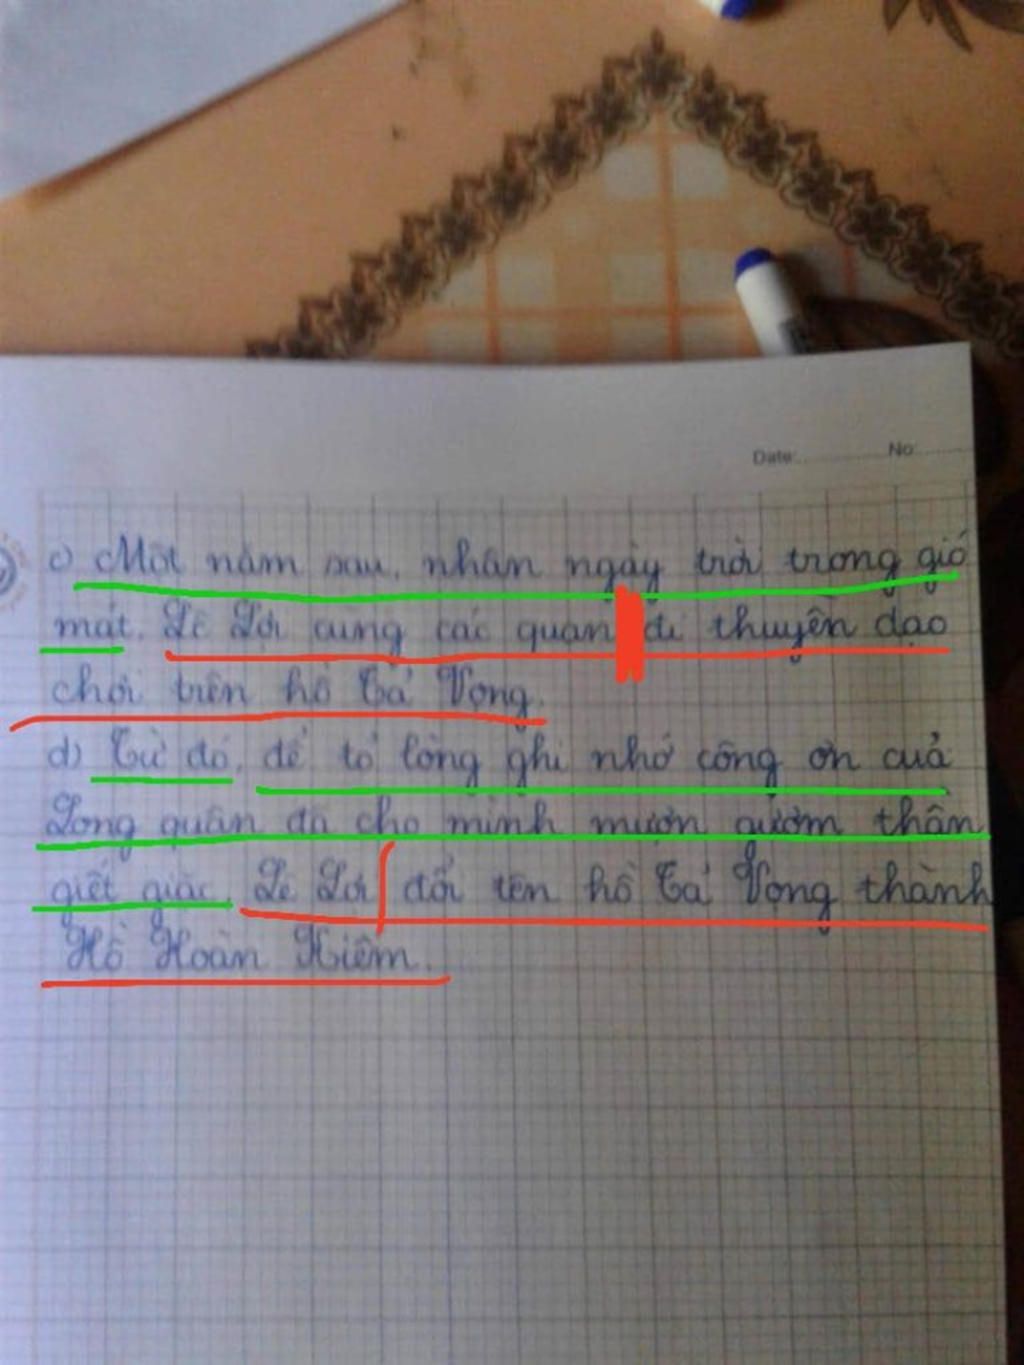 Date: No:
c) Một năm sau, nhân ngày trời trong gió
mát, Lê Lợi cùng các quan đi thuyền dạo
chơi trên hồ Tả Vọng.
d) Từ đó, để tỏ lòng ghi nhớ công ơn của
Long quân đã cho mình mượn gươm thần
giết giặc, Lê Lợi đổi tên hồ Tả Vọng thành
Hồ Hoàn Kiếm.